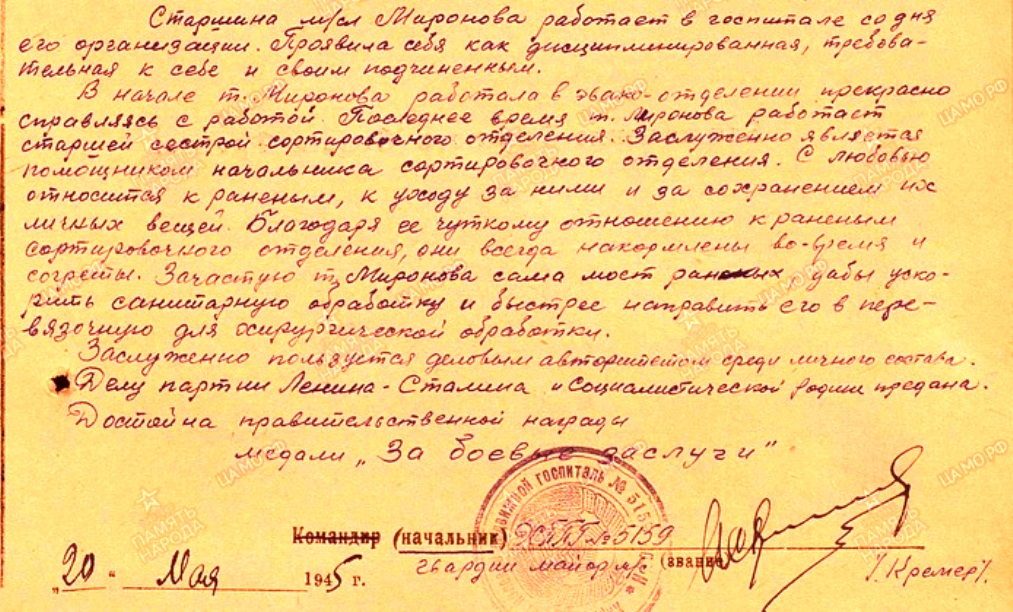 Старшина м/сл Миронова работает в госпитале со дня
его организации. Проявила себя как дисциплинированная, требова-
тельная к себе и своим подчиненным.
В начале т. Миронова работала в эвако-отделении прекрасно
справляясь с работой. Последнее время т. Миронова работает
старшей сестрой сортировочного отделения. Заслуженно является
помощником начальника сортировочного отделения. С любовью
относится к раненым, к уходу за ними и за сохранением их
личных вещей. Благодаря ее чуткому отношению к раненым
сортировочного отделения, они всегда накормлены во-время и
согреты. Зачастую т. Миронова сама моет раненых дабы уско-
рить санитарную обработку и быстрее направить его в пере-
вязочную для хирургической обработки.
Заслуженно пользуется деловым авторитетом среди личного состава.
Делу партии Ленина-Сталина и Социалистической родии предана.
Достойна правительственной награды
медали „За боевые заслуги"
Командир (начальник) ХППГ № 5159
гвардии майор м/с (звание) /Кремер/.
„20" Мая 1945 г.
ГОСПИТАЛЬ №
ЦАМО РФ
ПАМЯТЬ НАРОДА